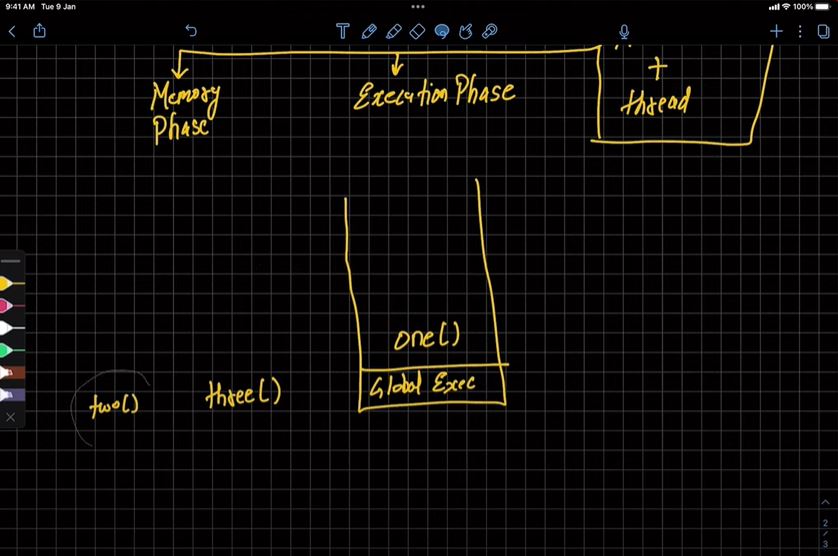 9:41 AM Tue 9 Jan
100%
Memory
Phase
Execution Phase
+
thread
one()
Global Exec
two()
three()
2
/
3